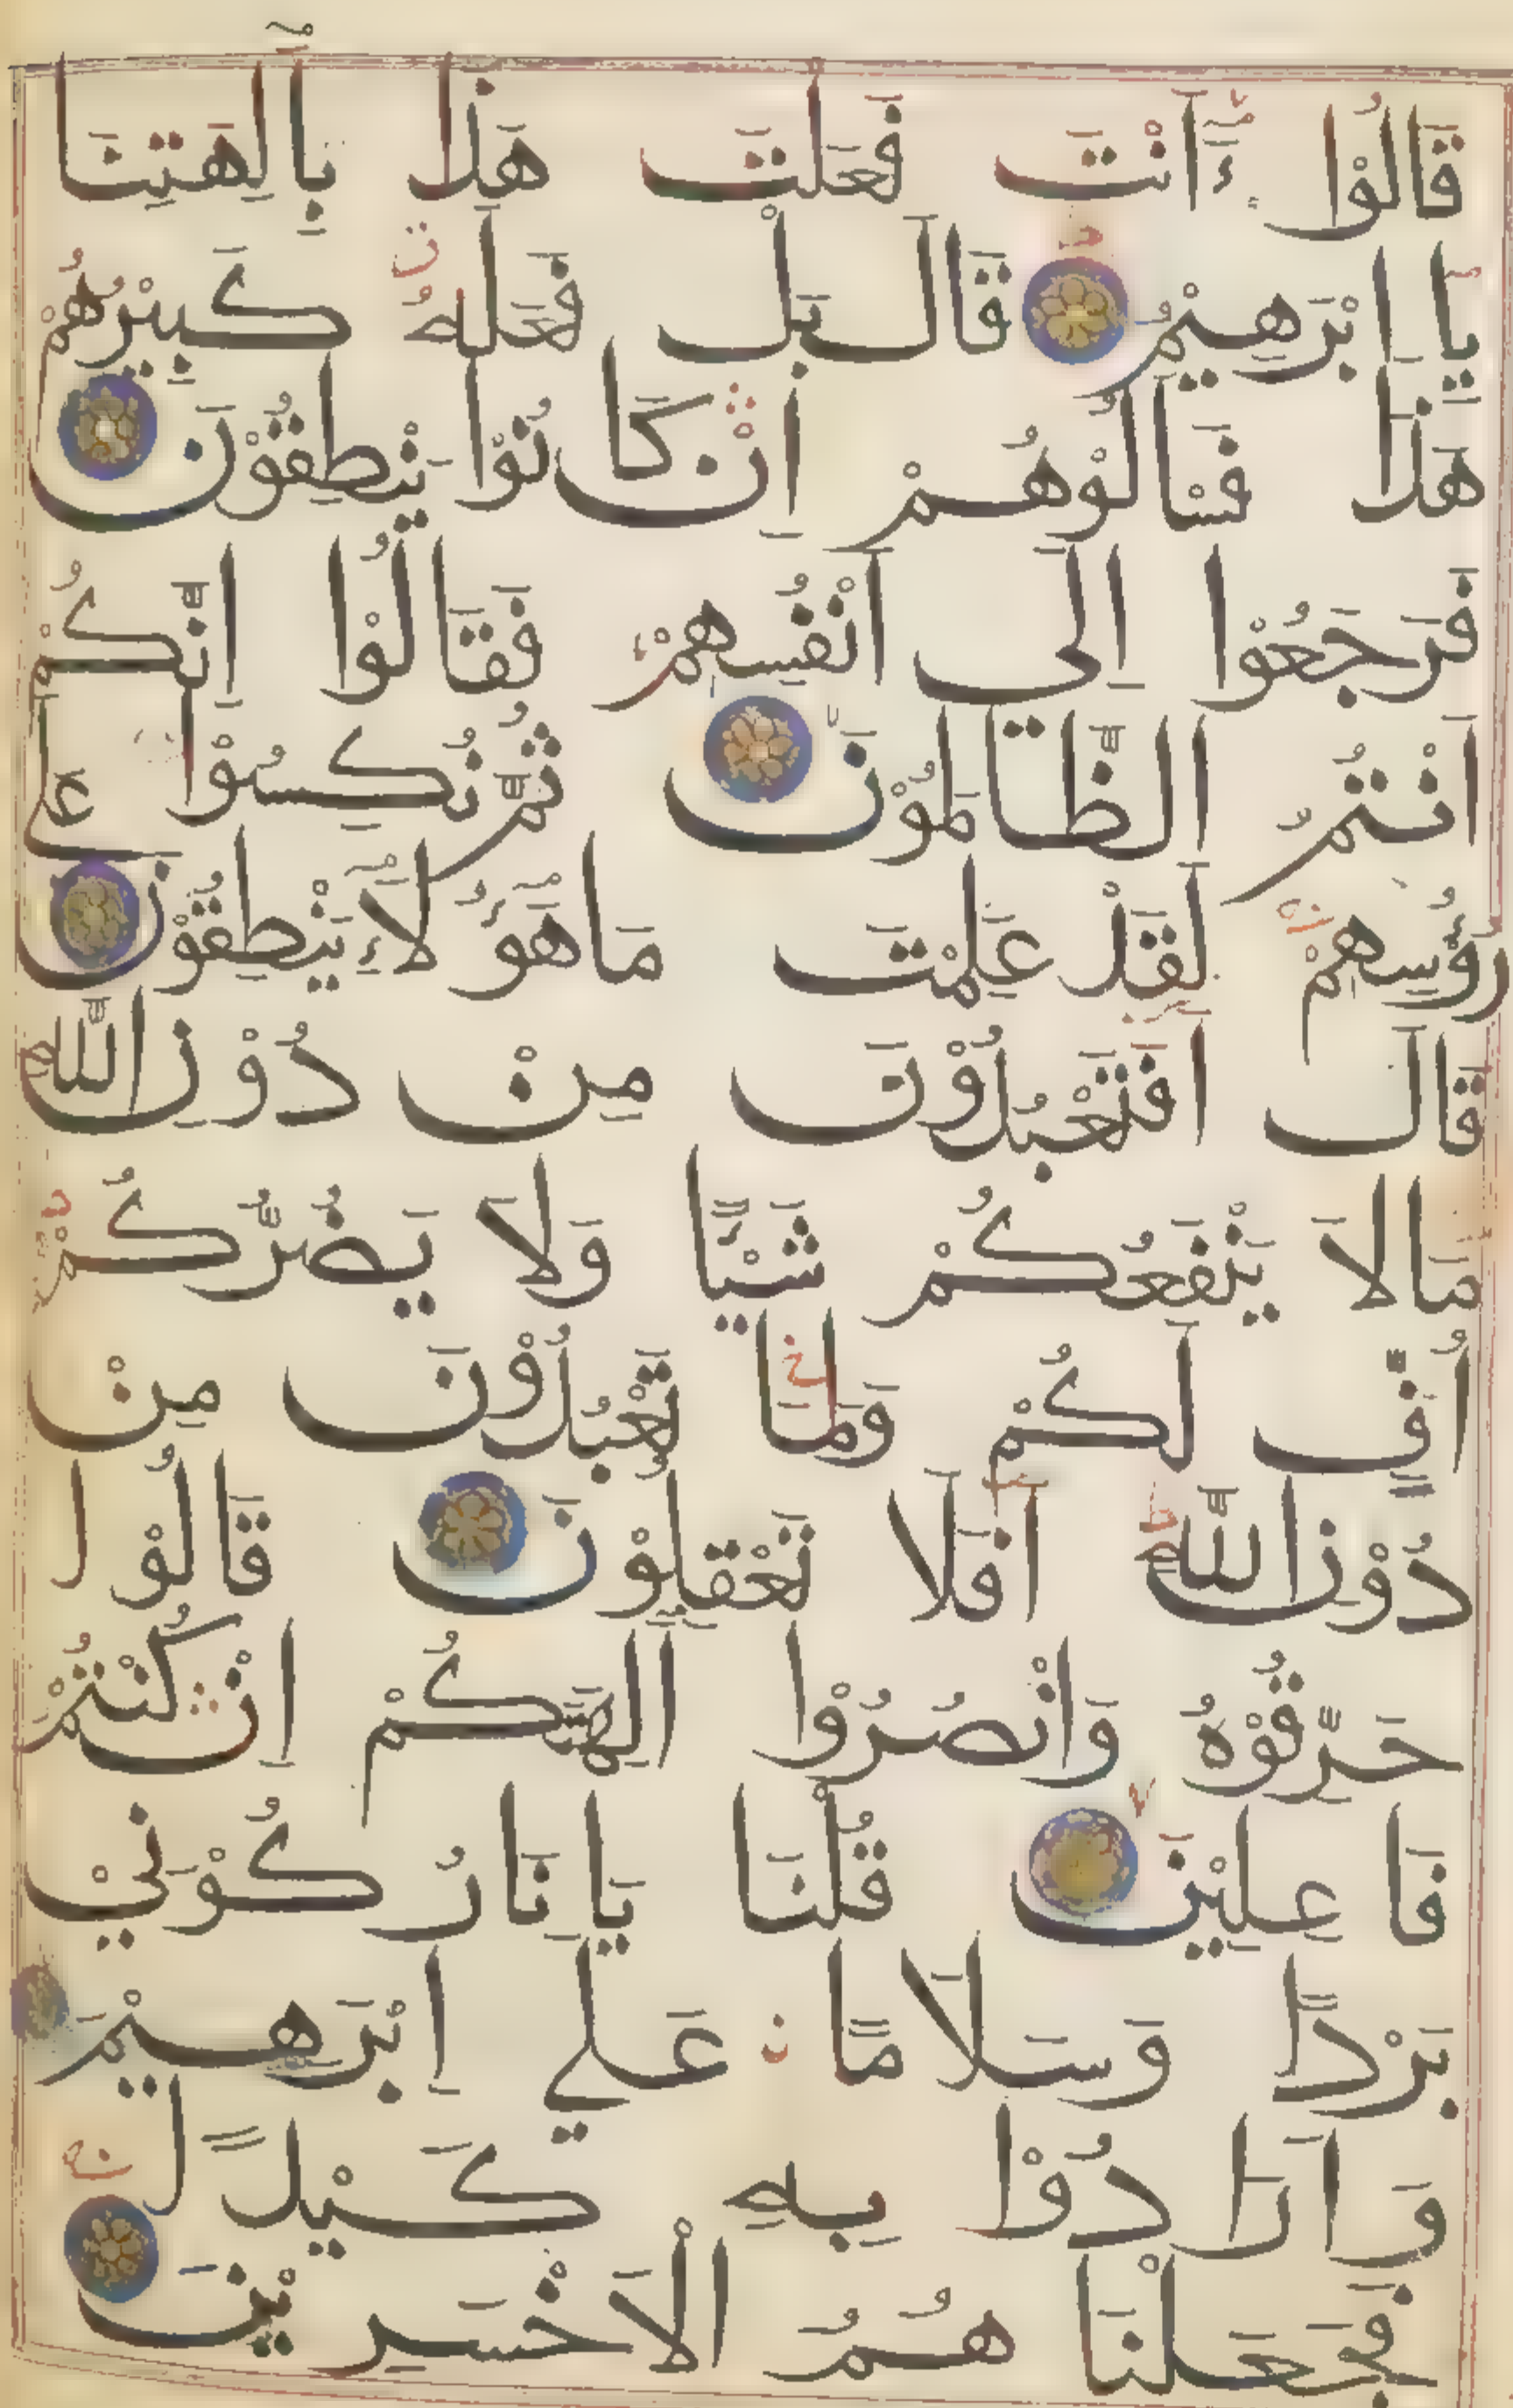 قَالُوْا ءَاَنْتَ فَعَلْتَ هٰذَا بِاٰلِهَتِنَا
يَا اِبْرَهِيْمُ قَالَ بَلْ فَعَلَهُ كَبِيْرُهُمْ
هٰذَا فَسْاَلُوْهُمْ اِنْ كَانُوْا يَنْطِقُوْنَ
فَرَجَعُوْا اِلَى اَنْفُسِهِمْ فَقَالُوْا اِنَّكُمْ
اَنْتُمُ الظَّالِمُوْنَ ثُمَّ نُكِسُوْا عَلَى
رُؤُسِهِمْ لَقَدْ عَلِمْتَ مَا هَؤُلَاءِ يَنْطِقُوْنَ
قَالَ اَفَتَعْبُدُوْنَ مِنْ دُوْنِ اللّٰهِ
مَالَا يَنْفَعُكُمْ شَيْـًٔا وَلَا يَضُرُّكُمْ
اُفٍّ لَكُمْ وَلِمَا تَعْبُدُوْنَ مِنْ
دُوْنِ اللّٰهِ اَفَلَا تَعْقِلُوْنَ قَالُوْا
حَرِّقُوْهُ وَانْصُرُوْا اٰلِهَتَكُمْ اِنْ كُنْتُمْ
فَاعِلِيْنَ قُلْنَا يَا نَارُ كُوْنِيْ
بَرْدًا وَسَلَامًا عَلَي اِبْرَهِيْمَ
وَاَرَادُوْا بِهِ كَيْدًا
فَجَعَلْنَا هُمُ الْاَخْسَرِيْنَ